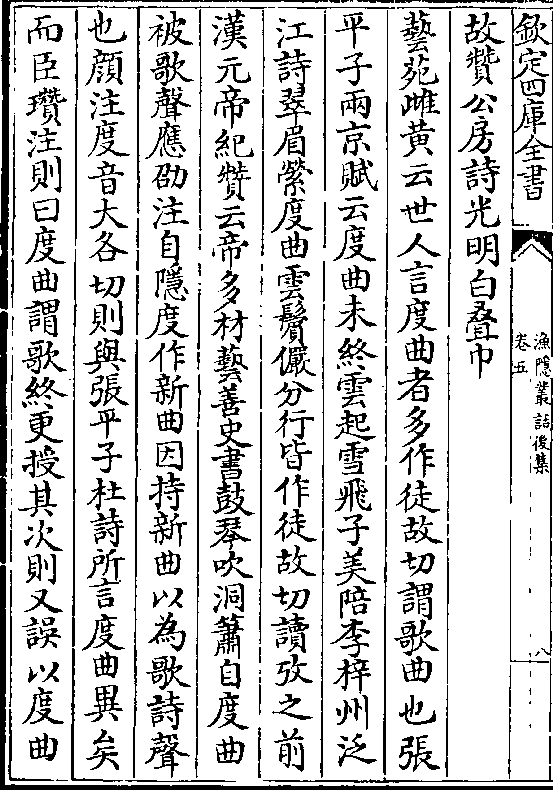 欽定四庫全書
漁隱叢話後集
卷五
八
故贊公房詩光明白㲲巾
藝苑雌黄云世人言度曲者多作徒故切謂歌曲也張
平子兩京賦云度曲未終雲起雪飛子美陪李梓州泛
江詩翠眉縈度曲雲鬢儼分行皆作徒故切讀攷之前
漢元帝紀贊云帝多材藝善史書鼓琴吹洞簫自度曲
被歌聲應劭注自隱度作新曲因持新曲以為歌詩聲
也顔注度音大各切則與張平子杜詩所言度曲異矣
而臣瓚注則曰度曲謂歌終更授其次則又誤以度曲